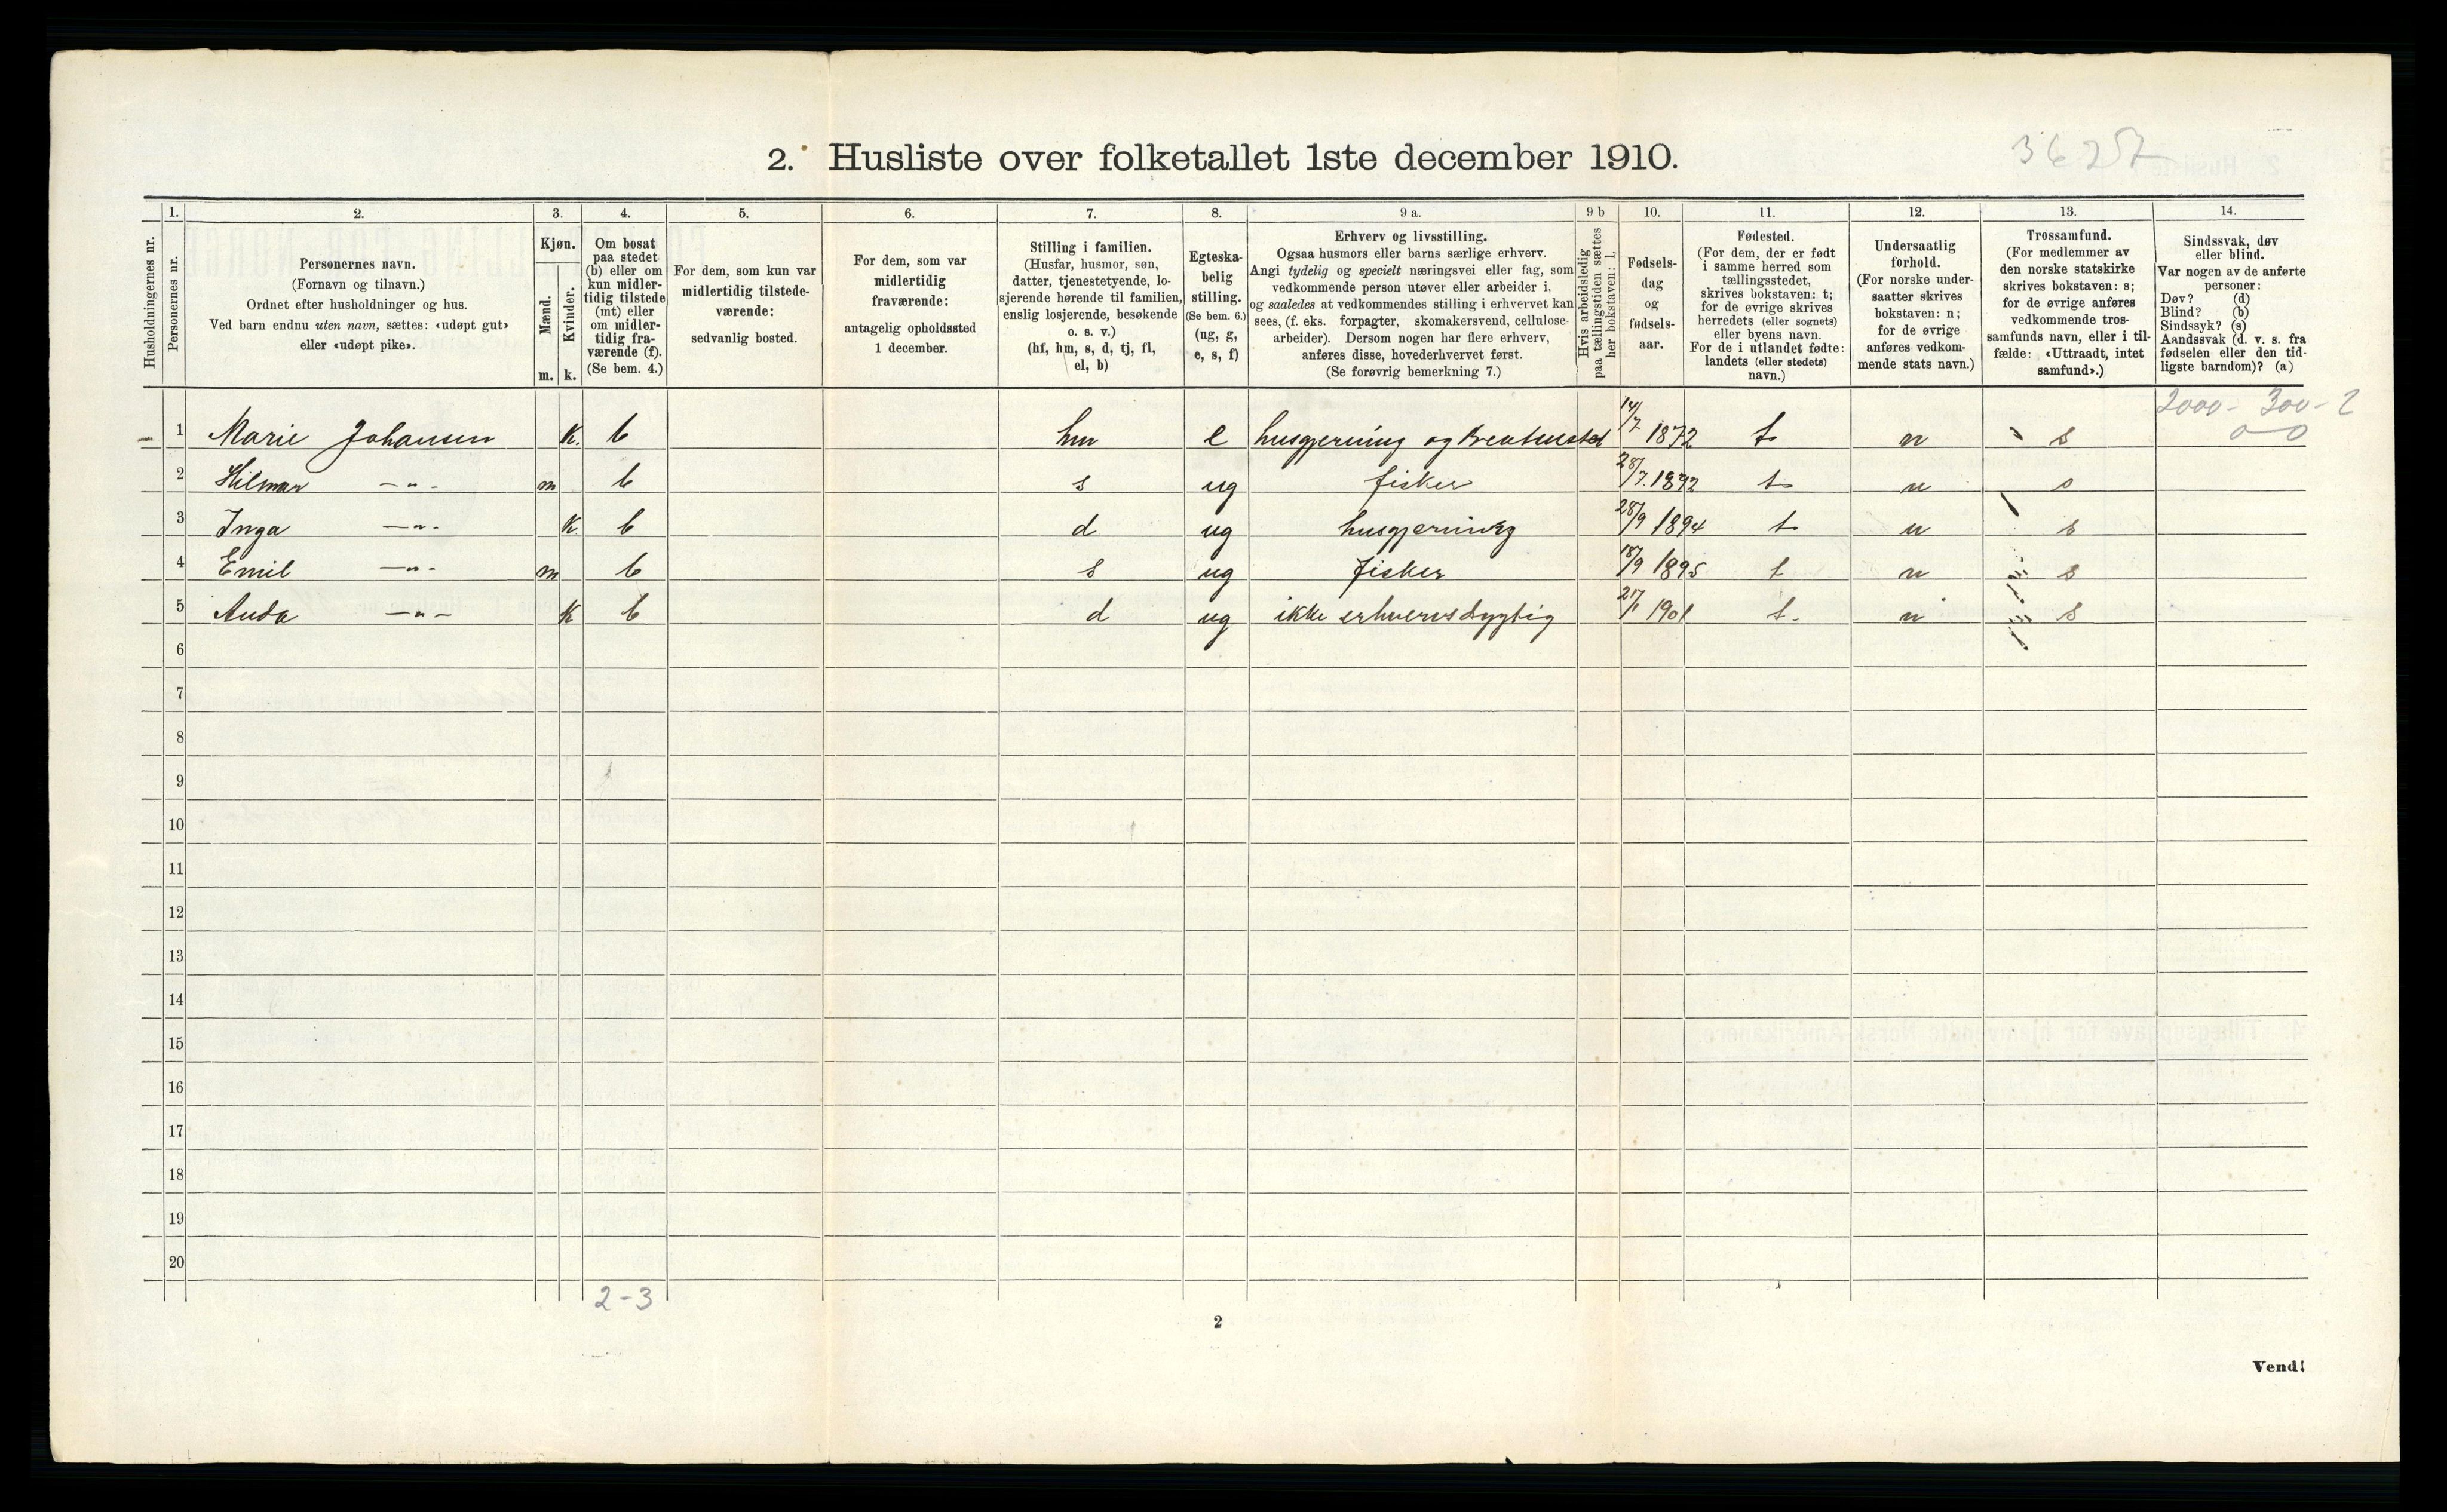 3625
2. Husliste over folketallet 1ste december 1910.
Husholdningernes nr.
1.
Personernes nr.
2.
Personernes navn.
(Fornavn og tilnavn.)
Ordnet efter husholdninger og hus.
Ved barn endnu uten navn, sættes: «udøpt gut»
eller «udøpt pike».
3.
Kjøn.
Mænd.
Kvinder.
m. k.
4.
Om bosat
paa stedet
(b) eller om
kun midler-
tidig tilstede
(mt) eller
om midler-
tidig fra-
værende (f).
(Se bem. 4.)
5.
For dem, som kun var
midlertidig tilstede-
værende:
sedvanlig bosted.
6.
For dem, som var
midlertidig
fraværende:
antagelig opholdssted
1 december.
7.
Stilling i familien.
(Husfar, husmor, søn,
datter, tjenestetyende, lo-
sjerende hørende til familien,
enslig losjerende, besøkende
o. s. v.)
(hf, hm, s, d, tj, fl,
el, b)
8.
Egteska-
belig
stilling.
(Se bem. 6.)
(ug, g,
e, s, f)
9 a.
Erhverv og livsstilling.
Ogsaa husmors eller barns særlige erhverv.
Angi tydelig og specielt næringsvei eller fag, som
vedkommende person utøver eller arbeider i,
og saaledes at vedkommendes stilling i erhvervet kan
sees, (f. eks. forpagter, skomakersvend, cellulose-
arbeider). Dersom nogen har flere erhverv,
anføres disse, hovederhvervet først.
(Se forøvrig bemerkning 7.)
9 b
Hvis arbeidsledig
paa tællingstiden sættes
her bokstaven: l.
10.
Fødsels-
dag
og
fødsels-
aar.
11.
Fødested.
(For dem, der er født
i samme herred som
tællingsstedet,
skrives bokstaven: t;
for de øvrige skrives
herredets (eller sognets)
eller byens navn.
For de i utlandet fødte:
landets (eller stedets)
navn.)
12.
Undersaatlig
forhold.
(For norske under-
saatter skrives
bokstaven: n;
for de øvrige
anføres vedkom-
mende stats navn.)
13.
Trossamfund.
(For medlemmer av
den norske statskirke
skrives bokstaven: s;
for de øvrige anføres
vedkommende tros-
samfunds navn, eller i til-
fælde: «Uttraadt, intet
samfund».)
14.
Sindssvak, døv
eller blind.
Var nogen av de anførte
personer:
Døv? (d)
Blind? (b)
Sindssyk? (s)
Aandssvak (d. v. s. fra
fødselen eller den tid-
ligste barndom)? (a)
2000 - 300 - 2
0 0
1 Marie Johansen k. b hm e husgjerning og 14/7 1872 t n s
2 Hilmar —"— m b s ug fisker 28/7 1892 t n s
3 Inga —"— k b d ug husgjerning 28/9 1894 t n s
4 Emil —"— m b s ug fisker 18/9 1895 t n s
5 —"— k b d ug ikke erhvervsdygtig 1901 t. n s
6
7
8
9
10
11
12
13
14
15
16
17
18
19
20
2-3
2
Vend!